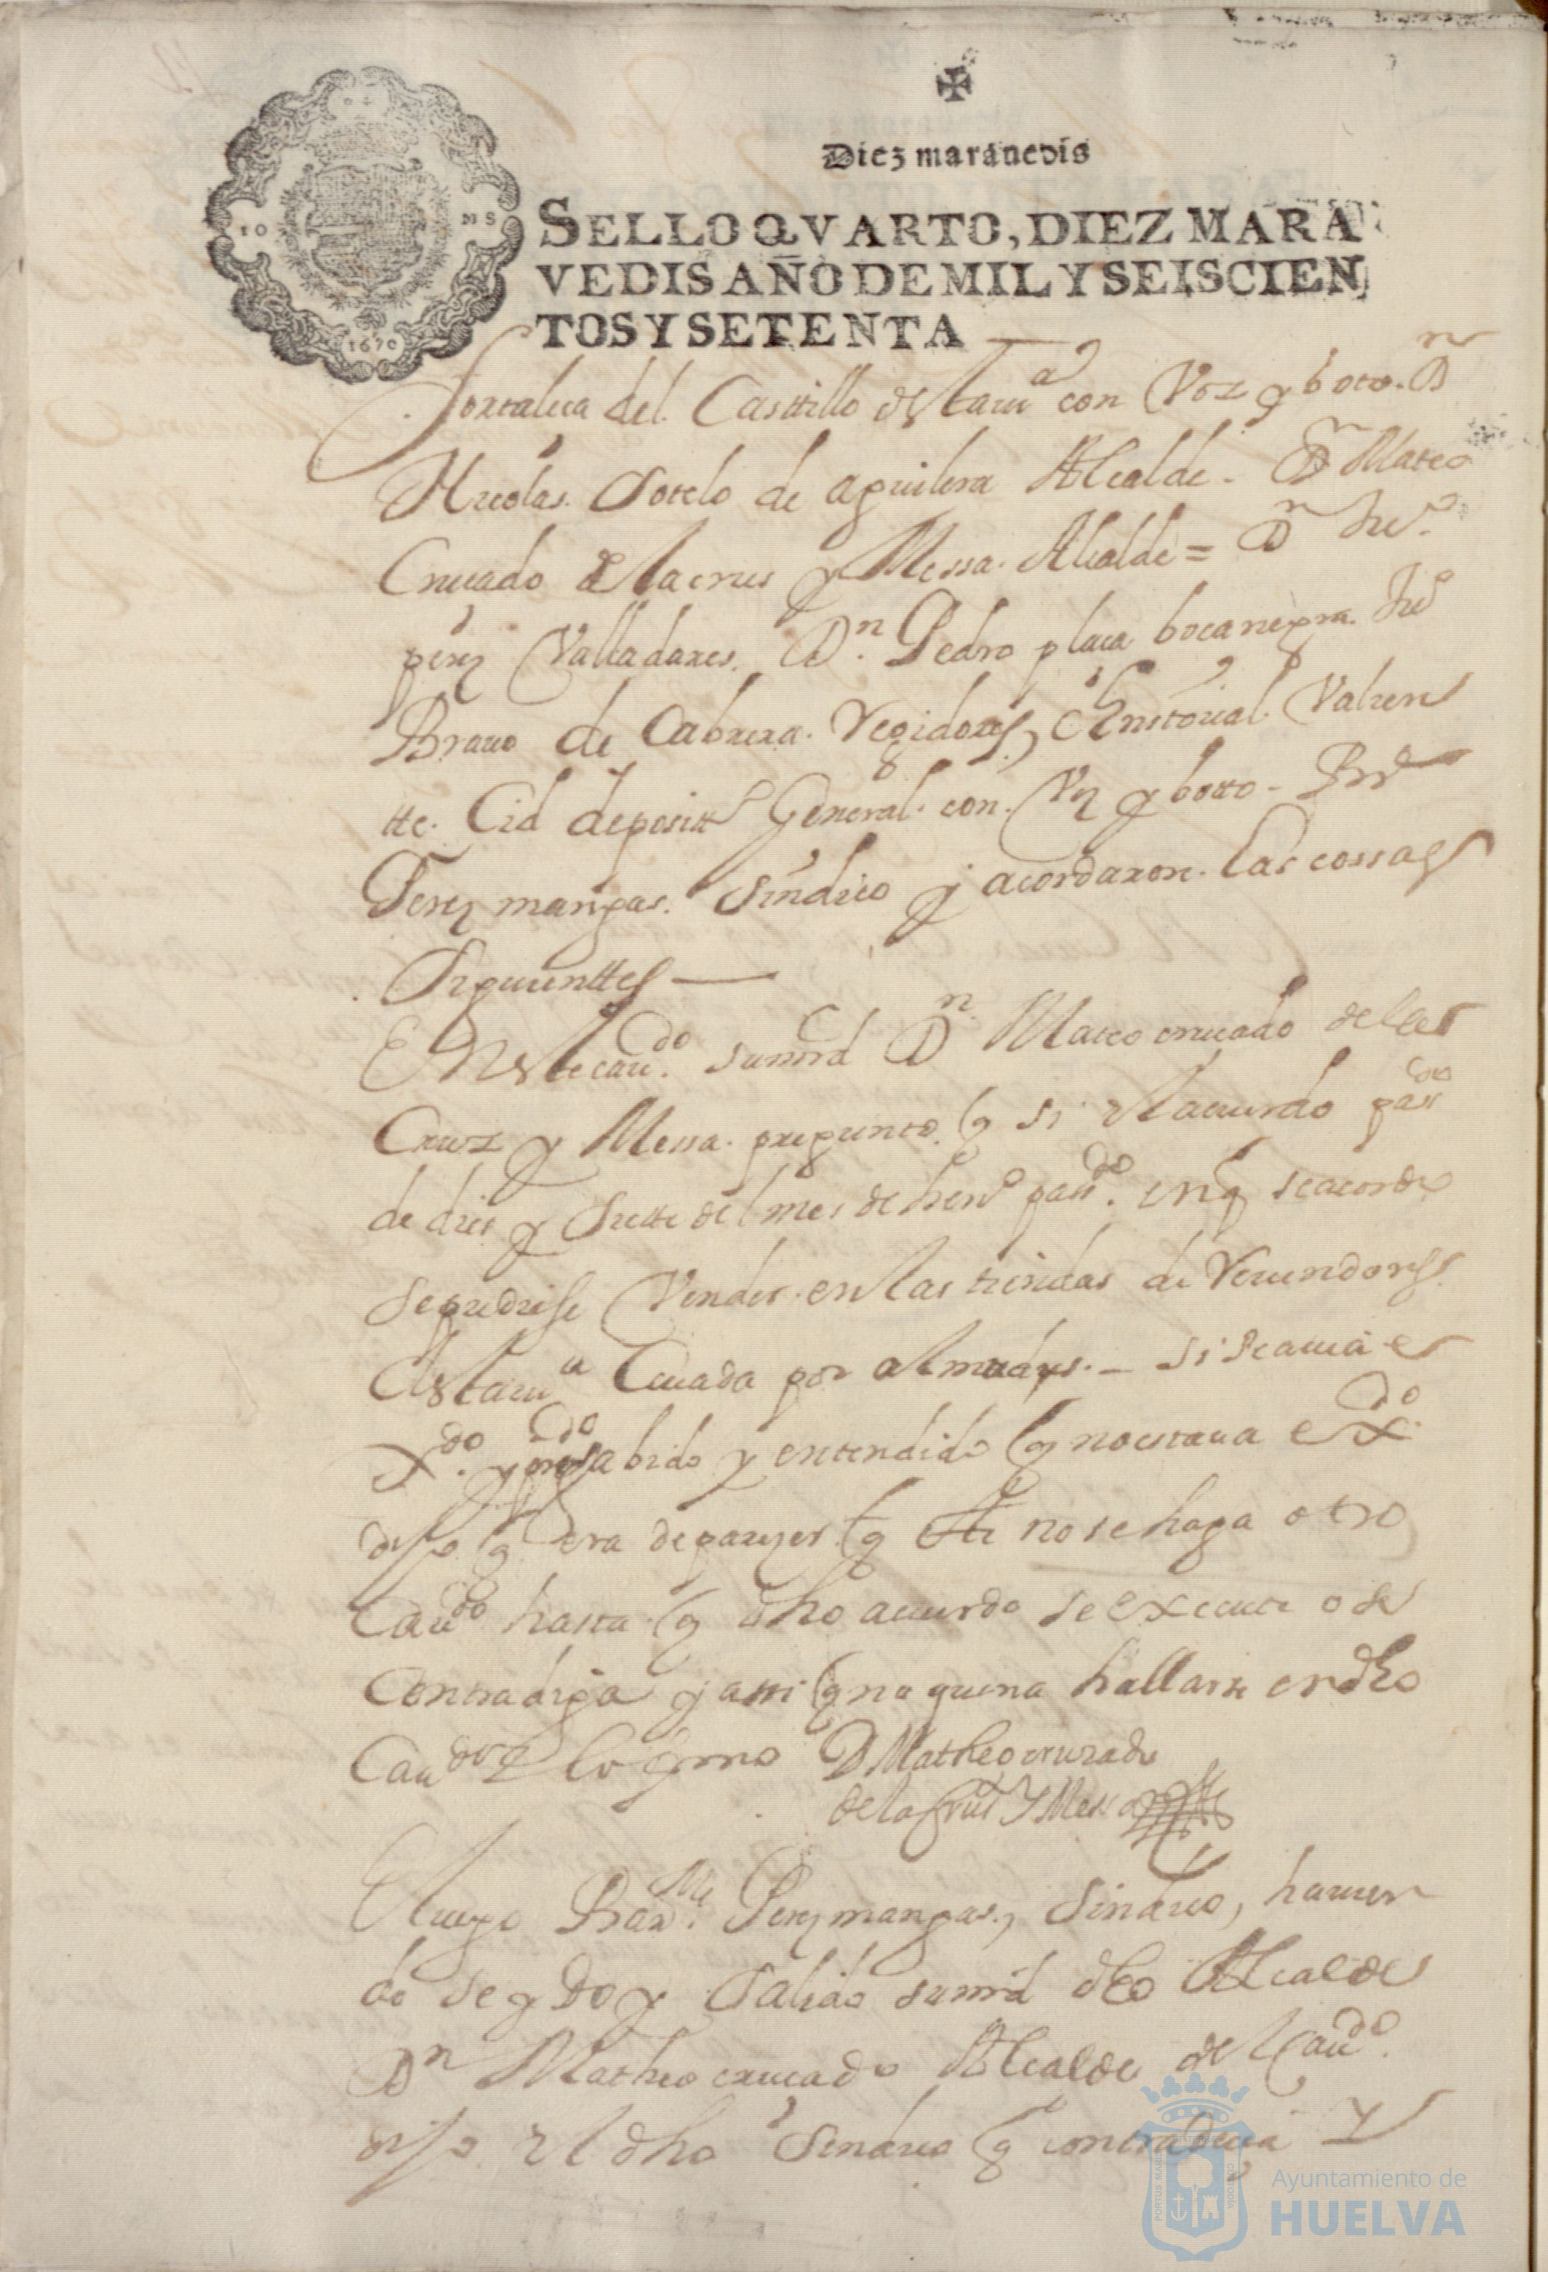 Diez marauedis
SELLO QVARTO, DIEZ MARA
VEDIS AÑO DE MIL Y SEISCIEN
TOS Y SETENTA
1670
fortaleca del Casttillo desta uª con Voz y boto. Dn
Nicolas Sotelo de aguilera Alcalde. Dn Mateo
Crucado de la crus y Messa. Alcalde = Dn Juº
perez Valladares. Dn. Pedro placa bocanegra. Juº
Brauo de Cabrera. Regidores, Cristoual Valien
tte. Cid deposittº General con Vz y botto - Brme
Perez mangas. Sindico y acordaron las cossas
Siguienttes
En este caudo. su mrd Dn Mateo crucado de la
Cruz y Messa. pregunto q si el acuerdo passdo
de dies y Siette del mes de henº passdo. en q se acordo
se pudiese Vender en las tiendas de Reuendores
desta uª Ceuada por almudes. - si se auia e
Xdo. y sabido y entendido q no estaua eXdo.
dijo q era de parezer q no se haga otro
Caudo hasta q dho acuerdo se execute o se
Contradiga y assi q no queria hallarse en dho
Caudo y lo firmo D Matheo cruzado
de la Crus Y Messa
E luego Barme. Perez mangas, Sindico, hauien
do se ydo y Salido su mrd dho Alcalde
Dn Matheo crucado Alcalde del Caudo.
dijo el dho Sindico q contradecia Y
Ayuntamiento de
HUELVA